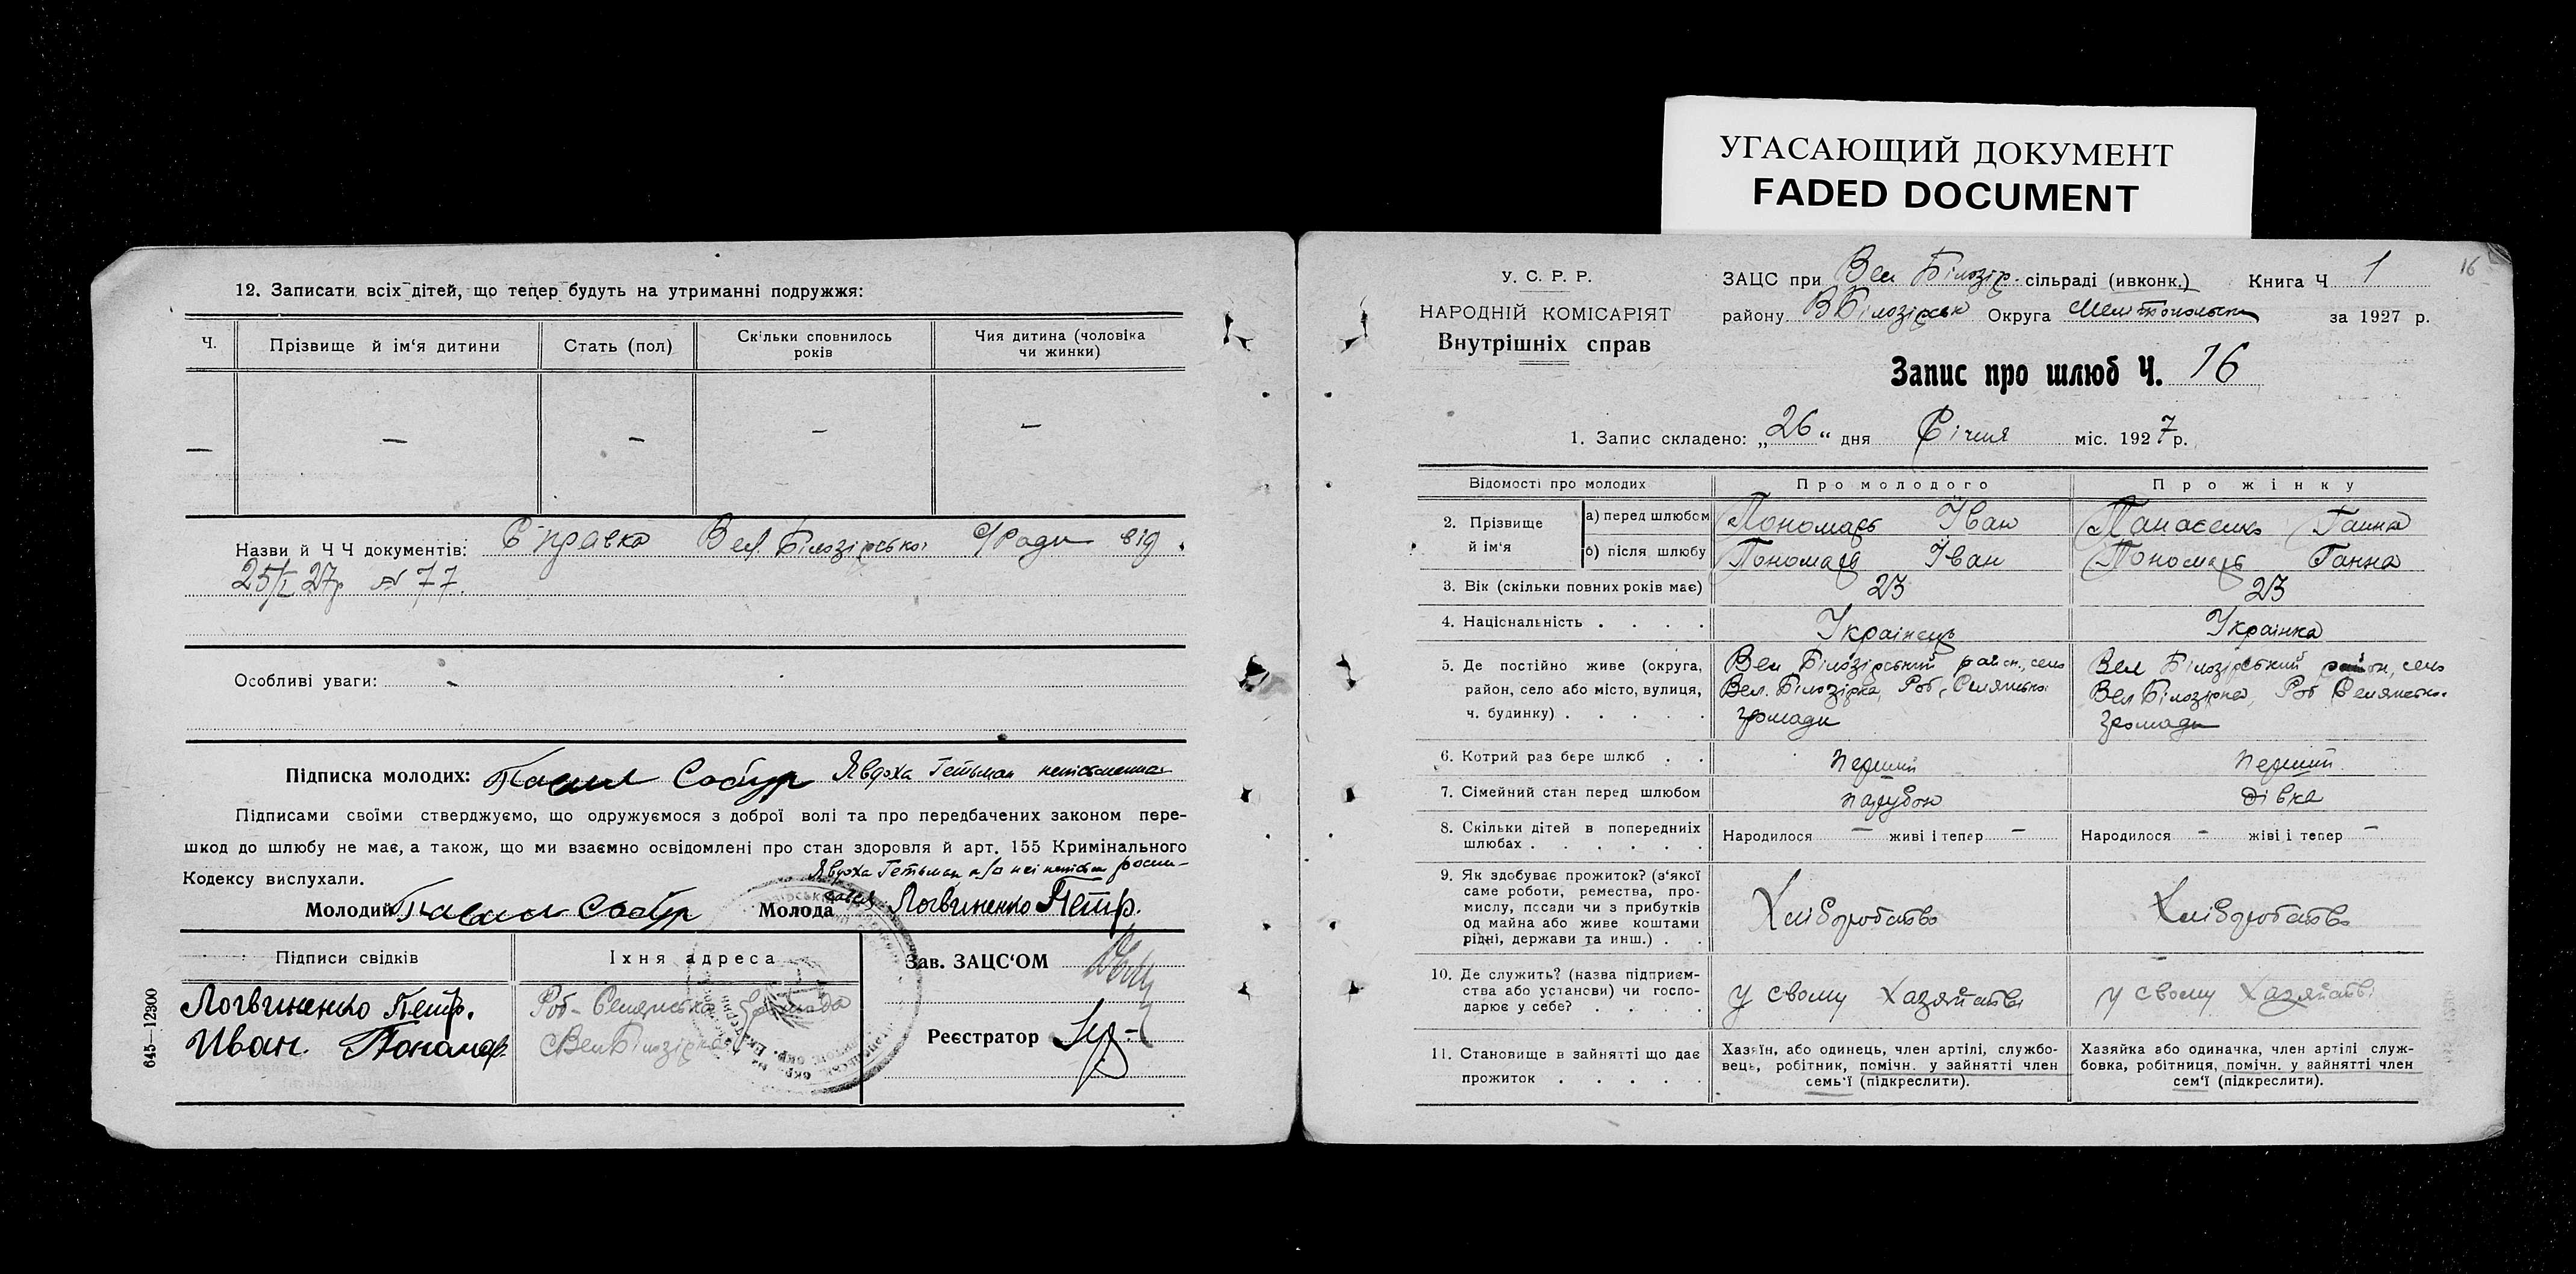 УГАСАЮЩИЙ ДОКУМЕНТ
FADED DOCUMENT
12. Записати всіх дітей, що тепер будуть на утриманні подружжя:
Ч. Прізвище й ім‘я дитини Стать (пол) Скільки сповнилось років Чия дитина (чоловіка чи жинки)
— — — — —
Назви й Ч Ч документів: Справка Вел. Білозірської С/ради від
25/I 27р № 77.
Особливі уваги: -
Підписка молодих: Павел Собур Явдоха Гетьман неписьменна
Підписами своїми стверджуємо, що одружуємося з доброї волі та про передбачених законом пере-
шкод до шлюбу не має, а також, що ми взаємно освідомлені про стан здоровля й арт. 155 Кримінального
Кодексу вислухали.
Явдоха Гетьман
Молодий Павел Собур Молода Логвиненко Петр.
Підписи свідків Їхня адреса Зав. ЗАЦС‘ОМ
Логвиненко Петр. Роб-Селянська Громада
Иван. Понамар. Вел Білозірка Реєстратор
645—12300
У. С. Р. Р.
НАРОДНІЙ КОМІСАРІЯТ
Внутрішніх справ
ЗАЦС при Вел Білозір. сільраді (ивконк.) Книга Ч 1
16
району В Білозірськ Округа Мелитопольськ за 1927 р.
Запис про шлюб Ч. 16
1. Запис складено: „26“ дня Січня міс. 1927 р.
Відомості про молодих Про молодого Про жінку
2. Прізвище й ім‘я
а) перед шлюбом Пономарь Іван Панасенко Ганна
б) після шлюбу Пономарь Іван Пономарь Ганна
3. Вік (скільки повних років має) 23 23
4. Національність . . . . Українець Українка
5. Де постійно живе (округа,
район, село або місто, вулиця,
ч. будинку) . . . . .
Вел Білозірський район., село
Вел. Білозірка, Роб, Селянської
громади
Вел Білозірський район, село
Вел Білозірка, Роб Селянсько.
громади
6. Котрий раз бере шлюб . . перший перший
7. Сімейний стан перед шлюбом парубок дівка
8. Скільки дітей в попередніх
шлюбах . . . . . .
Народилося — живі і тепер —
Народилося - жіві і тепер —
9. Як здобуває прожиток? (з‘якої
саме роботи, ремества, про-
мислу, посади чи з прибутків
од майна або живе коштами
рідні, держави та инш.) . .
Хліборобство
Хліборобство
10. Де служить? (назва підприєм-
ства або установи) чи госпо-
дарює у себе? . . . .
у свому хазяйстві
у свому хазяйстві
11. Становище в зайнятті що дає
прожиток . . . . .
Хазяїн, або одинець, член артілі, службо-
вець, робітник, помічн. у зайнятті член
семь‘ї (підкреслити).
Хазяйка або одиначка, член артілі служ-
бовка, робітниця, помічн. у зайнятті член
сем‘ї (підкреслити).